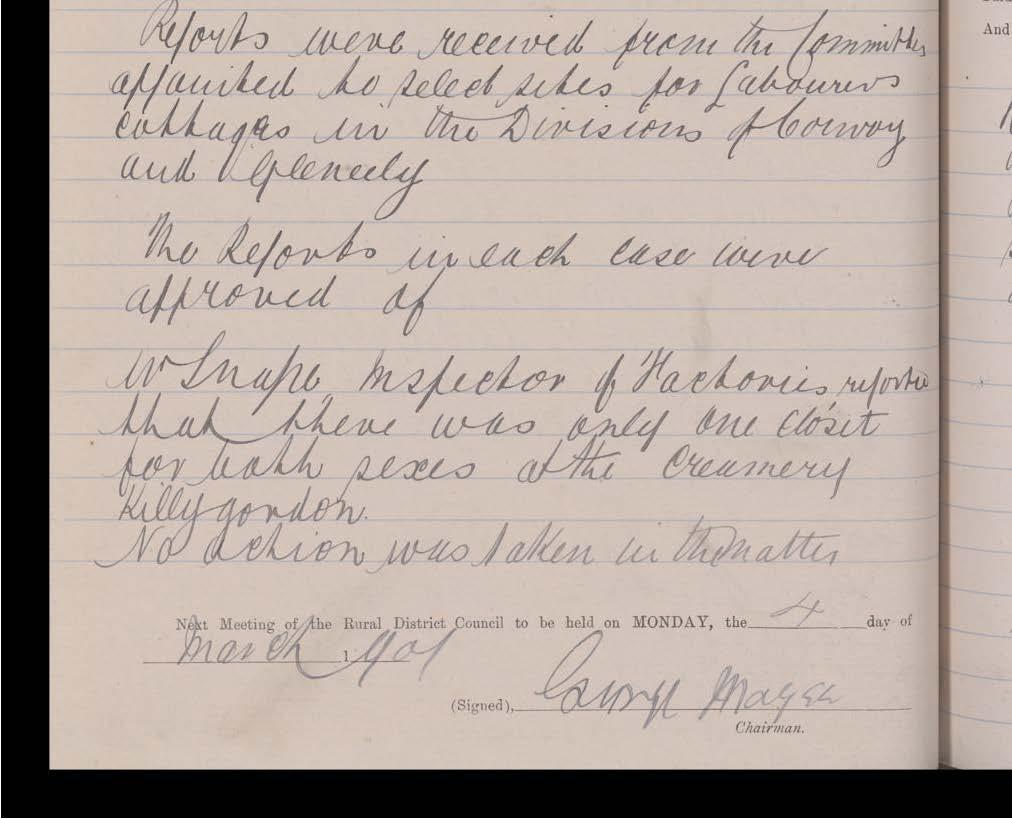 Reports were received from the Committees
appointed to select sites for Labourers
cottages in the Divisions of Corway
and Gleneely
The Reports in each case were
approved of
Mr Snape, Inspector of Factories reported
that there was only one closet
for both sexes at the Creamery
Killygordon.
No action was taken in the matter
Next Meeting of the Rural District Council to be held on MONDAY, the 4 day of
March 1901
(Signed), George Magee
Chairman.
And